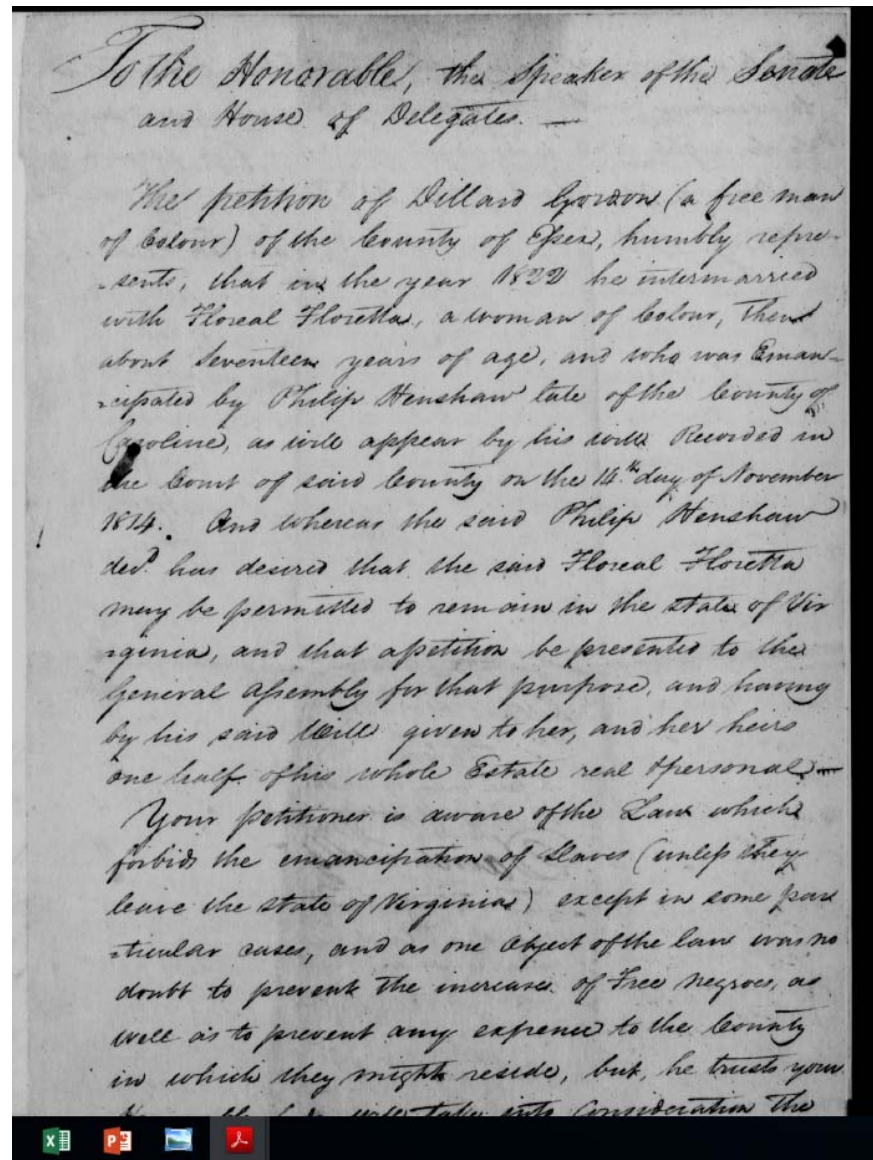 To the Honorable, the Speaker of the Senate
and House of Delegates. —
The petition of Dillard Gordon (a free man
of Colour) of the County of Essex, humbly repre-
-sents, that in the year 1822 he intermarried
with Floreal Floretta, a woman of Colour, then
about Seventeen years of age, and who was Eman-
-cipated by Philip Henshaw late of the County of
Caroline, as will appear by his will Recorded in
the Court of said County on the 14.th day of November
1814. And whereas the said Philip Henshaw
decd. has desired that the said Floreal Floretta
may be permitted to remain in the state of Vir
-ginia, and that a petition be presented to the
General Assembly for that purpose, and having
by his said Will given to her, and her heirs
one half of his whole Estate real & personal. —
Your petitioner is aware of the Law which
forbids the emancipation of Slaves (unless they
leave the state of Virginia) except in some par
-ticular cases, and as one object of the law was no
doubt to prevent the increase of Free negroes, as
well as to prevent any expence to the County
in which they might reside, but, he trusts your
will take into Consideration the